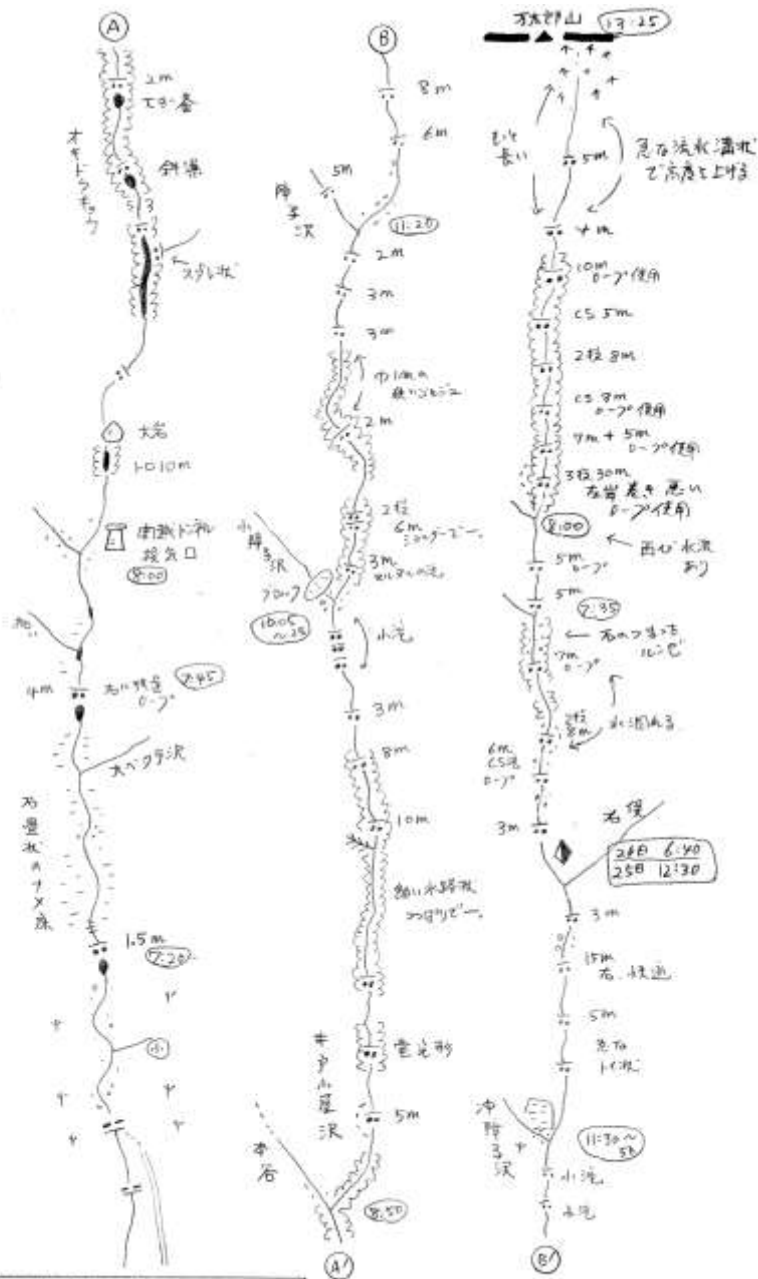 A
2m
オキドウキョウ
斜瀑
5 3
スダレ状
大岩
トロ10m
関越トンネル
換気口
8:00
4m
7:45
大ベタテ沢
石畳状のナメ床
1.5m
7:20
小
B
8m
6m
5m
障子沢
11:20
2m
3m
3m
巾1mの
狭いゴルジュ
2m
2段
6m
小障子沢
3m
ブロック
10:05
~25
小滝
3m
8m
10m
細い水路状
つっぱりで~。
井戸小屋沢
5m
本谷
8:50
A'
万太郎山
13:25
もっと
長い
5m
急な流水溝状
で高度を上げる
4m
10m
ロープ使用
CS 5m
2段 8m
CS 8m
ロープ使用
7m + 5m
ロープ使用
3段 30m
左岸巻き 悪い
ロープ使用
8:00
再び水流
あり
5m
ロープ
5m
7:35
石のつまった
ルンゼ
7m
ロープ
2段
8m
水涸れる
6m
CS滝
ロープ
3m
右俣
26日 6:40
25日 12:30
3m
15m
右、快適
5m
急な
トイ状
沖障子沢
11:30~
小滝
小滝
B'